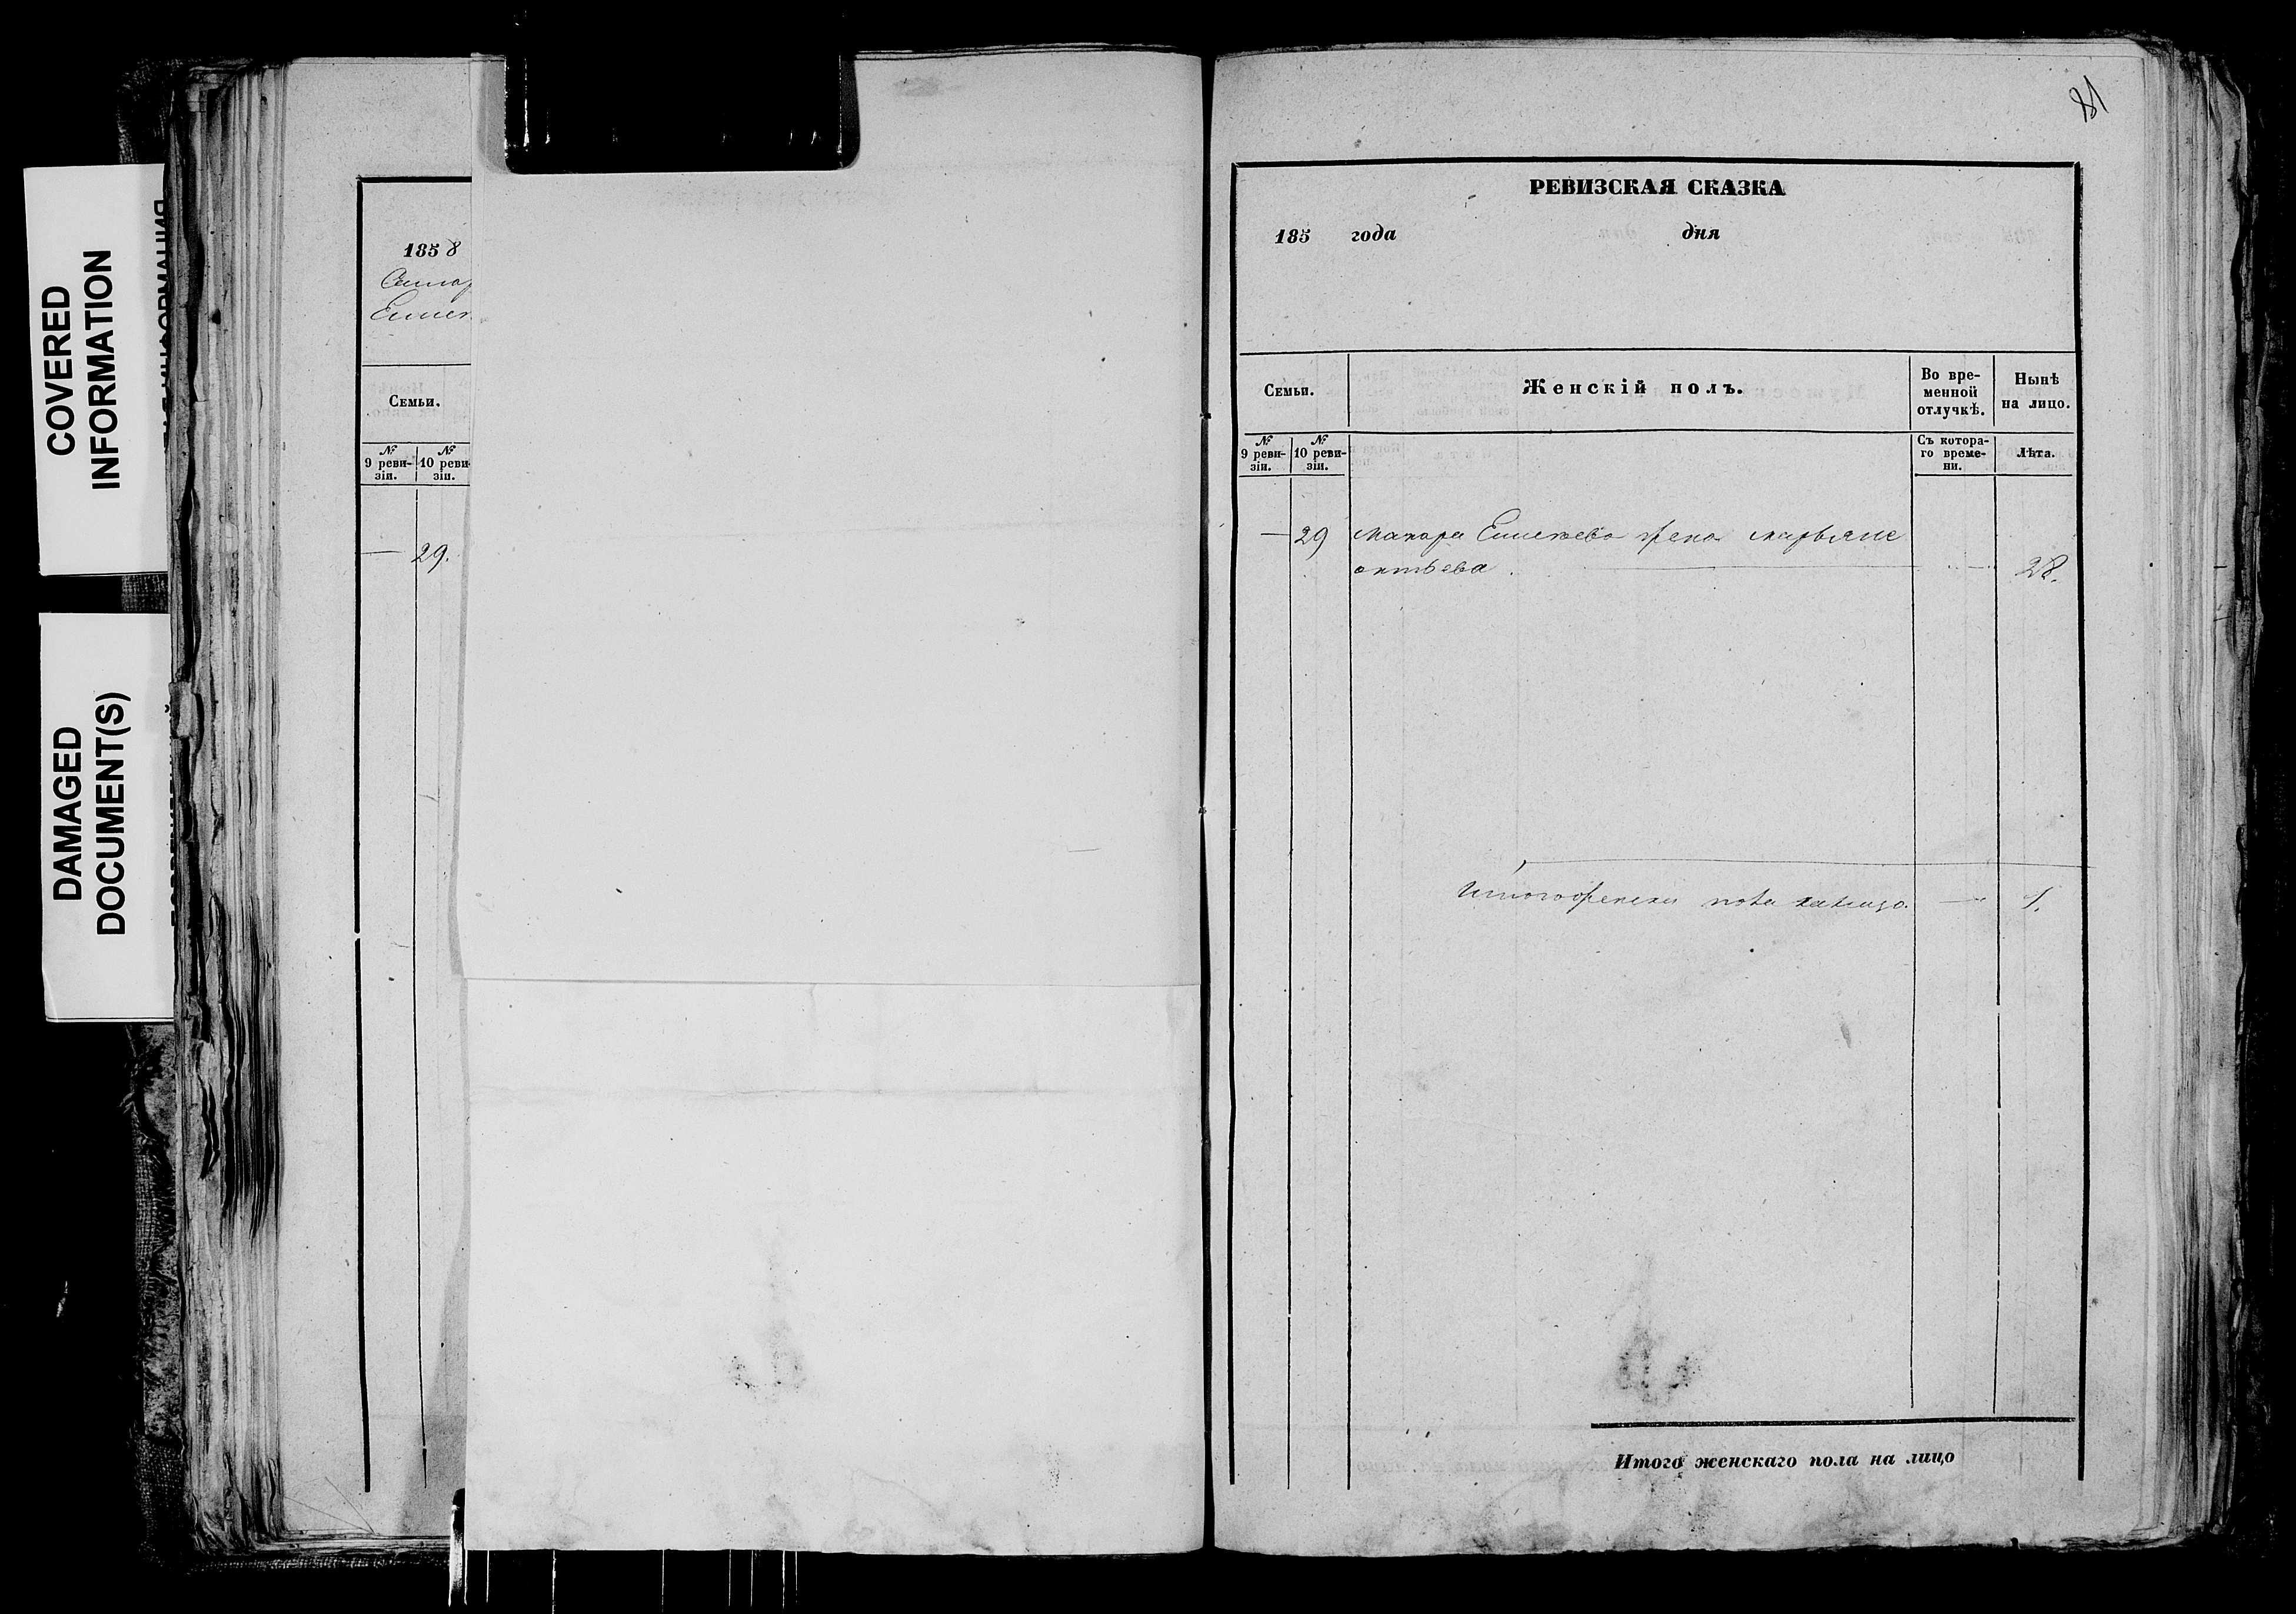 COVERED
INFORMATION
DAMAGED
DOCUMENT(S)
1858
Семьи.
№ 9 ревизіи.
№ 10 ревизіи.
— 29.
81
РЕВИЗСКАЯ СКАЗКА
185 года дня
Семьи.
Женскій полъ.
Во временной отлучкѣ.
Нынѣ на лицо.
№ 9 ревизіи.
№ 10 ревизіи.
Съ котораго времени.
Лѣта.
— 29 Макара жена
28.
Итого женска пола налицо. — 1.
Итого женскаго пола на лицо